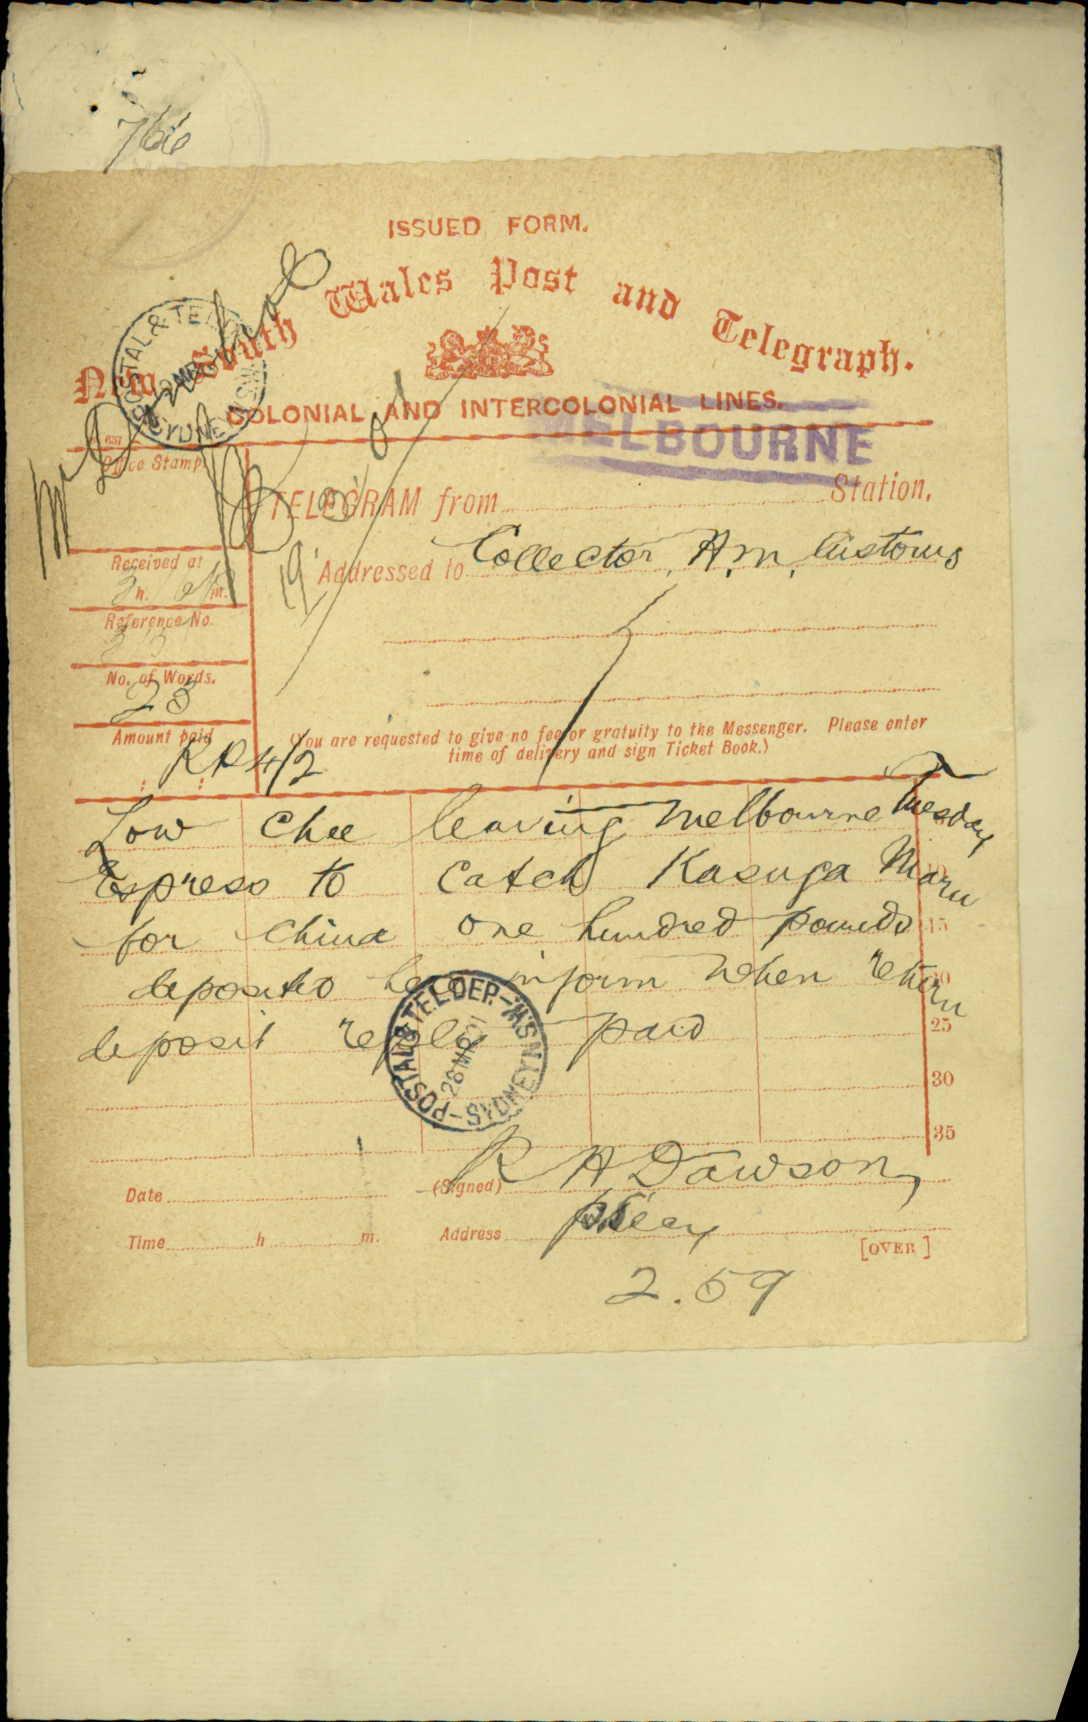 766
ISSUED FORM.
New South Wales Post and Telegraph.
POSTAL & TEL
SYDNEY N.S.W.
COLONIAL AND INTERCOLONIAL LINES.
MELBOURNE
Office Stamp.
TELEGRAM from Station,
Received at
h. m.
Addressed to Collector, H.M. Customs
Reference No.
No. of Words.
23
Amount paid
RP 4/2
(You are requested to give no fee or gratuity to the Messenger. Please enter
time of delivery and sign Ticket Book.)
Low Chee leaving Melbourne Tuesday
Express to catch Kasuga Maru
for China one hundred pounds 15
deposited here inform when return
deposit reply paid 25
POSTAL & TEL. DEP.-N.S.W.
28 MR 01
-SYDNEY
30
35
Date (Signed) R H Dawson,
Time h m. Address
[OVER]
2.59